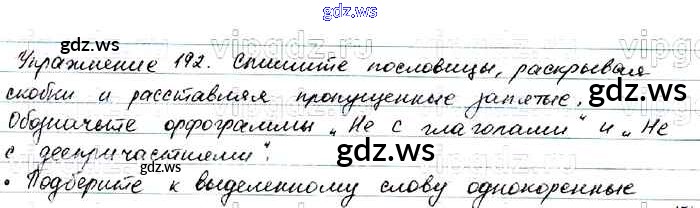 gdz.ws
Упражнение 192. Спишите пословицы, раскрывая
скобки и расставляя пропущенные запятые.
Обозначьте орфограммы „Не с глаголами“ и „Не
с деепричастиями“.
• Подберите к выделенному слову однокоренные
gdz.ws
gdz.ws
gdz.ws
gdz.ws
gdz.ws